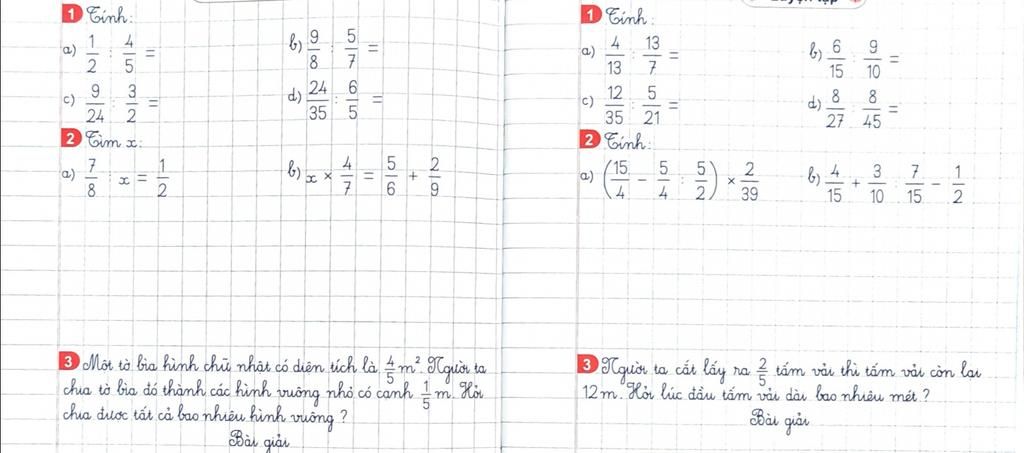 1 Tính:
a) 1/2 : 4/5 =
b) 9/8 : 5/7 =
c) 9/24 : 3/2 =
d) 24/35 : 6/5 =
2 Tìm x:
a) 7/8 : x = 1/2
b) x × 4/7 = 5/6 + 2/9
3 Một tờ bìa hình chữ nhật có diện tích là 4/5 m². Người ta
chia tờ bìa đó thành các hình vuông nhỏ có cạnh 1/5 m. Hỏi
chia được tất cả bao nhiêu hình vuông ?
Bài giải
1 Tính:
a) 4/13 : 13/7 =
b) 6/15 : 9/10 =
c) 12/35 : 5/21 =
d) 8/27 : 8/45 =
2 Tính:
a) (15/4 - 5/4 : 5/2) × 2/39
b) 4/15 + 3/10 : 7/15 - 1/2
3 Người ta cắt lấy ra 2/5 tấm vải thì tấm vải còn lại
12 m. Hỏi lúc đầu tấm vải dài bao nhiêu mét ?
Bài giải